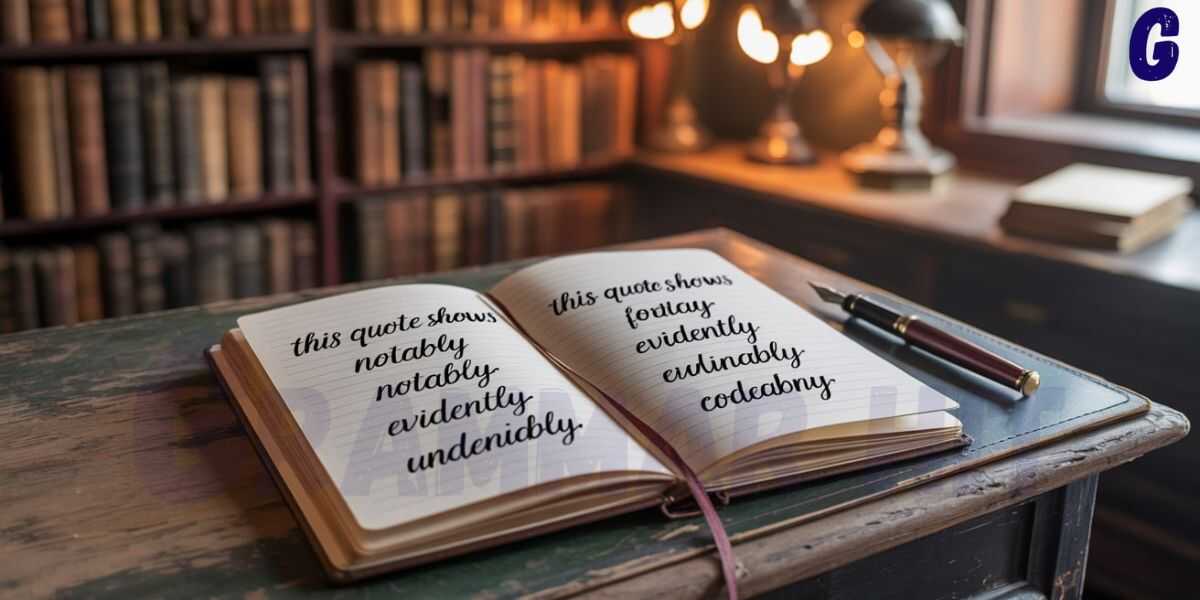 G
this quote shows
notably
notably
evidently
undenicbly
this quote shows
evidently
eulinably
codeabny